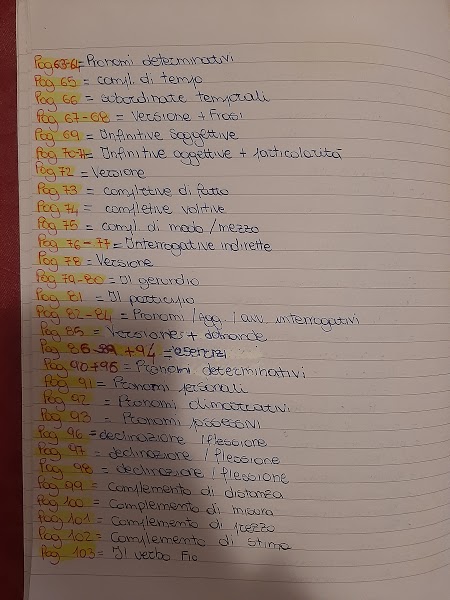 Pag 63-64 = Pronomi determinativi
Pag 65 = compl. di tempo
Pag 66 = subordinate temporali
Pag 67-68 = Versione + Frasi
Pag 69 = Infinitive soggettive
Pag 70-71 = Infinitive oggettive + particolarità
Pag 72 = Versione
Pag 73 = completive di fatto
Pag 74 = completive volitive
Pag 75 = compl. di modo/mezzo
Pag 76-77 = Interrogative indirette
Pag 78 = Versione
Pag 79-80 = Il gerundio
Pag 81 = Il participio
Pag 82-84 = Pronomi/Agg./avv. interrogativi
Pag 85 = Versione + domande
Pag 86-89 + 94 = esercizi
Pag 90+95 = Pronomi determinativi
Pag 91 = Pronomi personali
Pag 92 = Pronomi dimostrativi
Pag 93 = Pronomi possessivi
Pag 96 = declinazione/flessione
Pag 97 = declinazione/flessione
Pag 98 = declinazione/flessione
Pag 99 = Complemento di distanza
Pag 100 = Complemento di misura
Pag 101 = Complemento di prezzo
Pag 102 = Complemento di stima
Pag 103 = Il verbo Fio